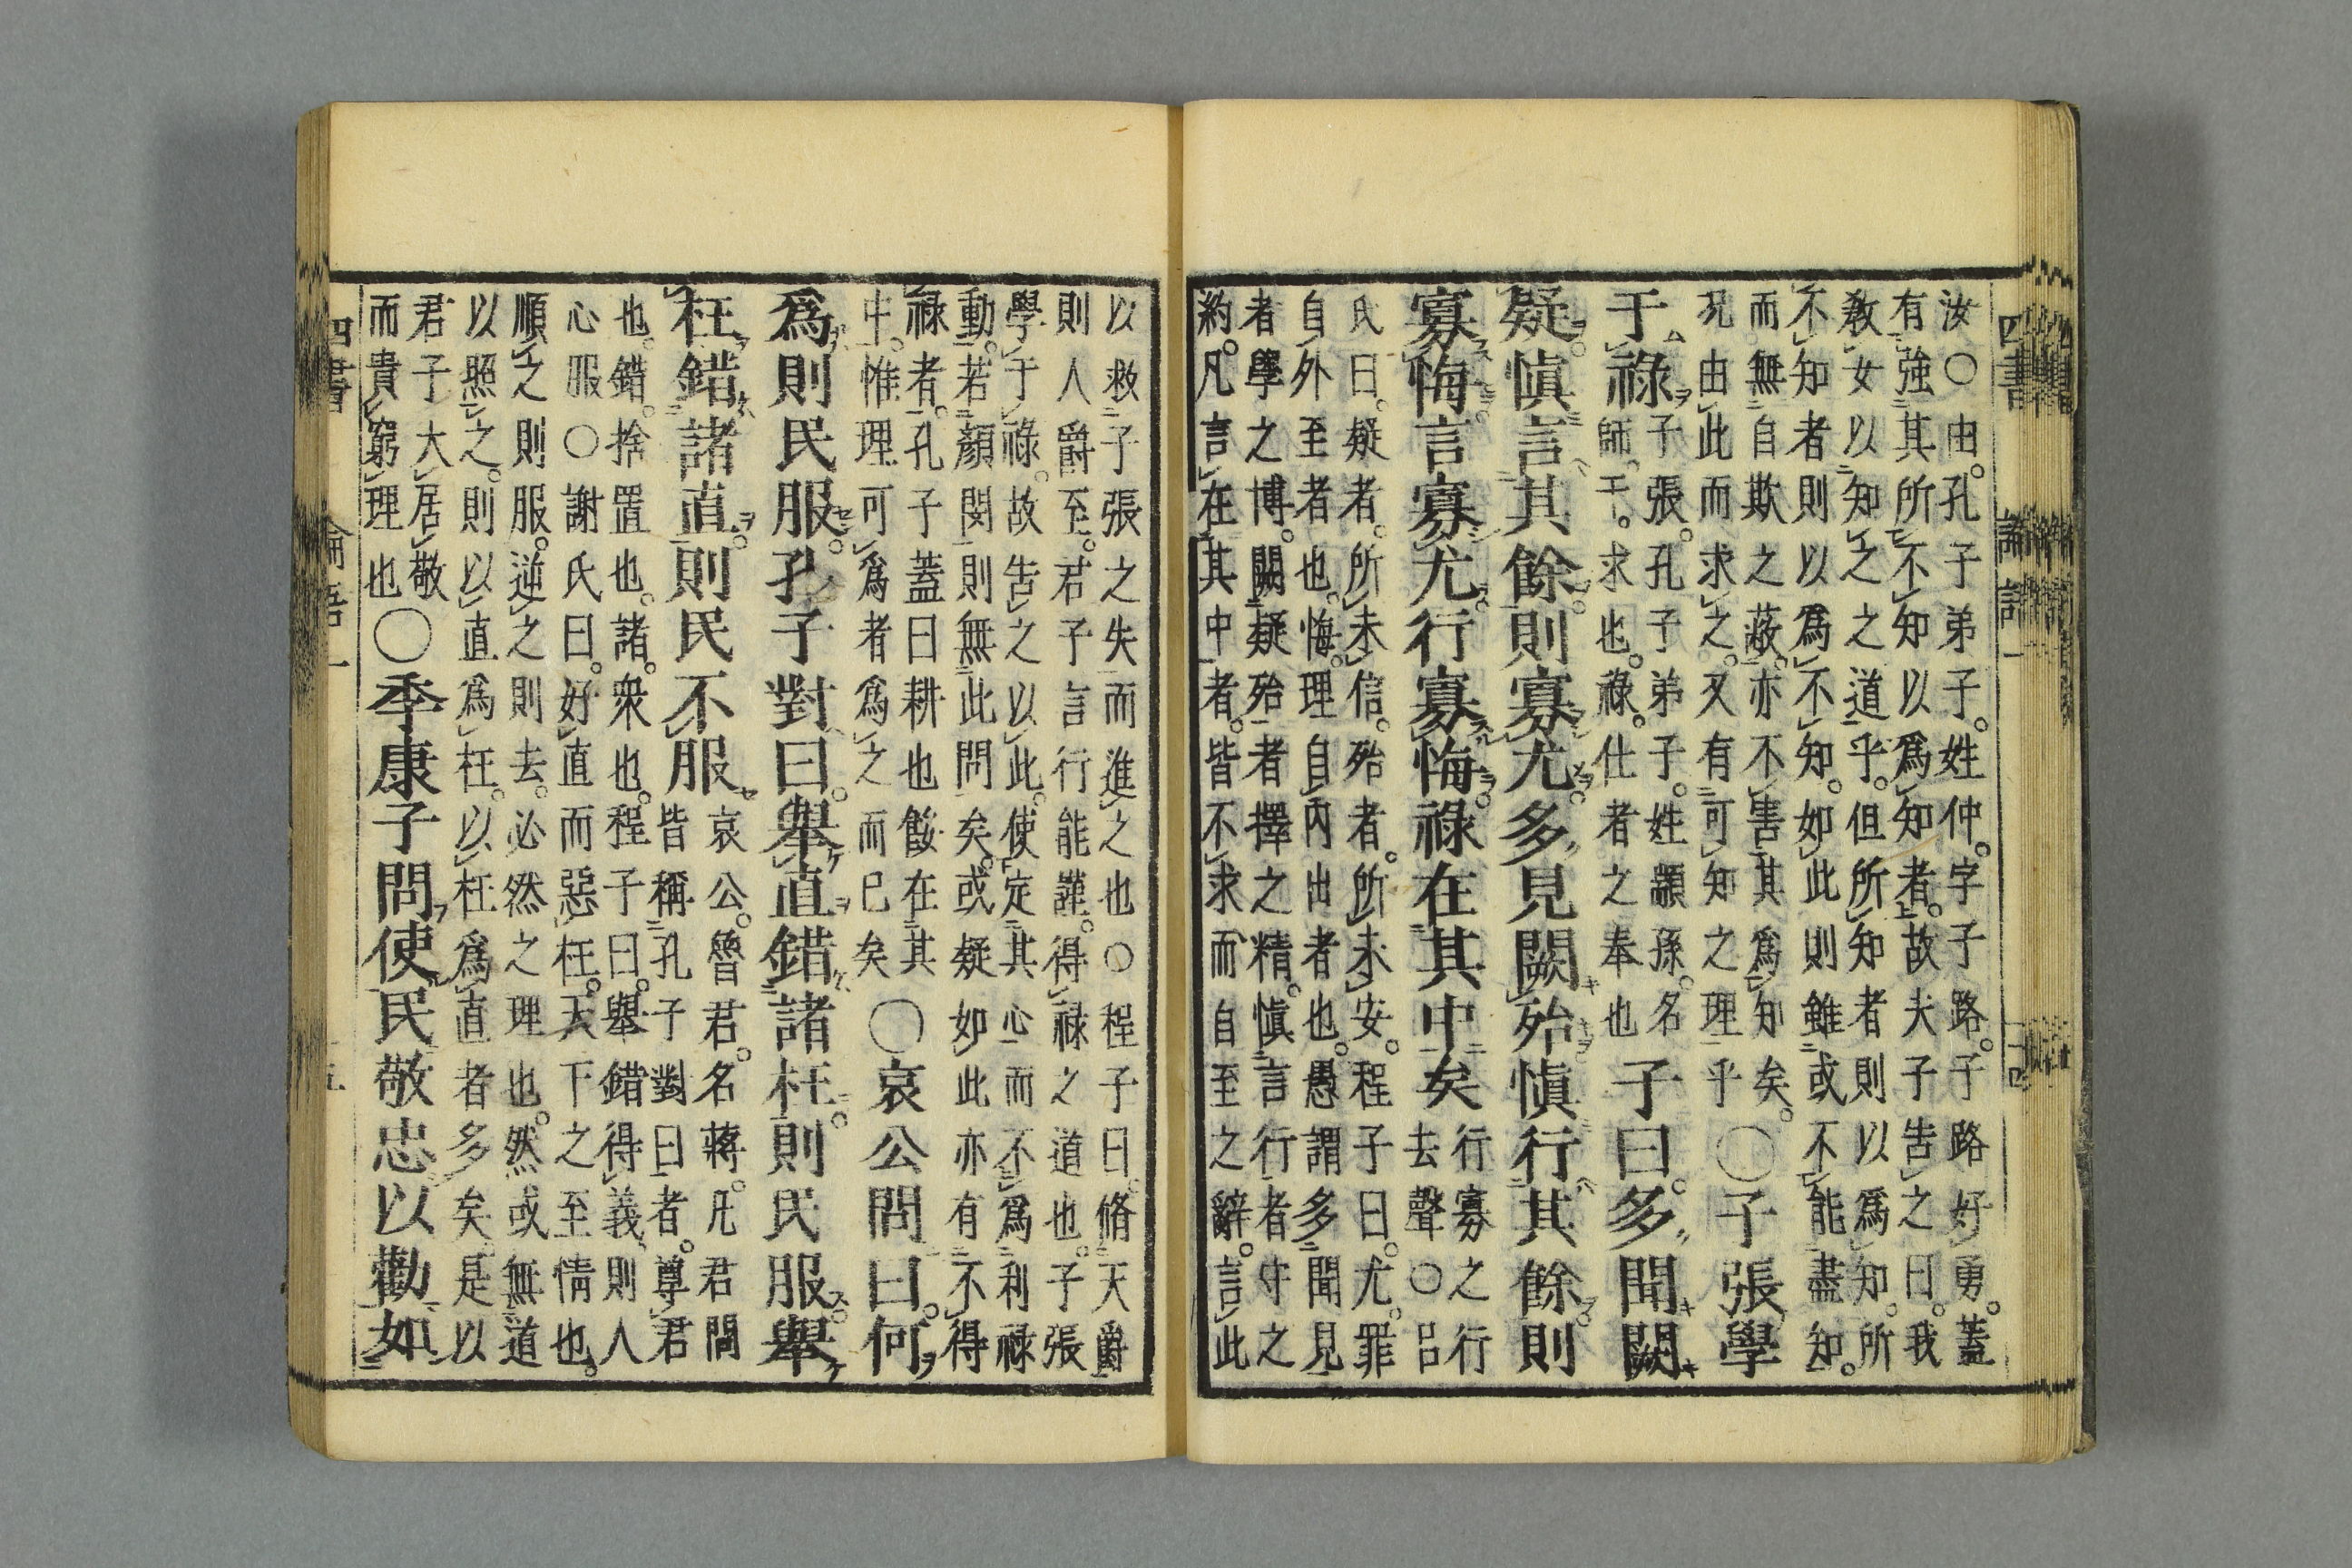 四書 論語一 十四
汝○由。孔子弟子。姓仲。字子路。子路好勇。蓋
有強其所不知以爲知者。故夫子告之曰。我
教女以知之之道乎。但所知者則以爲知。所
不知者則以爲不知。如此則雖或不能盡知。
而無自欺之蔽。亦不害其爲知矣。
况由此而求之。又有可知之理乎
○子張學
于祿
子張。孔子弟子。姓顓孫。名
師。干。求也。祿。仕者之奉也
子曰。多聞闕
疑慎言其餘則寡尤。多見闕殆慎行其餘則
寡悔。言寡尤行寡悔。祿在其中矣
行寡之行
去聲○呂
氏曰。疑者。所未信。殆者。所未安。程子曰。尤。罪
自外至者也。悔。理自內出者也。愚謂多聞見
者學之博。闕疑殆者擇之精。慎言行者守之
約。凡言在其中者。皆不求而自至之辭。言此
以救子張之失而進之也○程子曰。脩天爵
則人爵至。君子言行能謹。得祿之道也。子張
學于祿。故告之以此。使定其心而不爲利祿
動。若顏閔則無此問矣。或疑如此亦有不得
祿者。孔子蓋曰耕也餒在其
中。惟理可爲者爲之而已矣
○哀公問曰。何
爲則民服。孔子對曰。舉直錯諸枉。則民服。舉
枉錯諸直。則民不服。
哀公。魯君。名蔣。凡君問
皆稱孔子對曰者。尊君
也。錯。捨置也。諸。衆也。程子曰。舉錯得義。則人
心服○謝氏曰。好直而惡枉。天下之至情也。
順之則服。逆之則去。必然之理也。然或無道
以照之。則以直爲枉。以枉爲直者多矣。是以
君子大居敬
而貴窮理也
○季康子問。使民敬忠以勸如
四書 論語一 十五